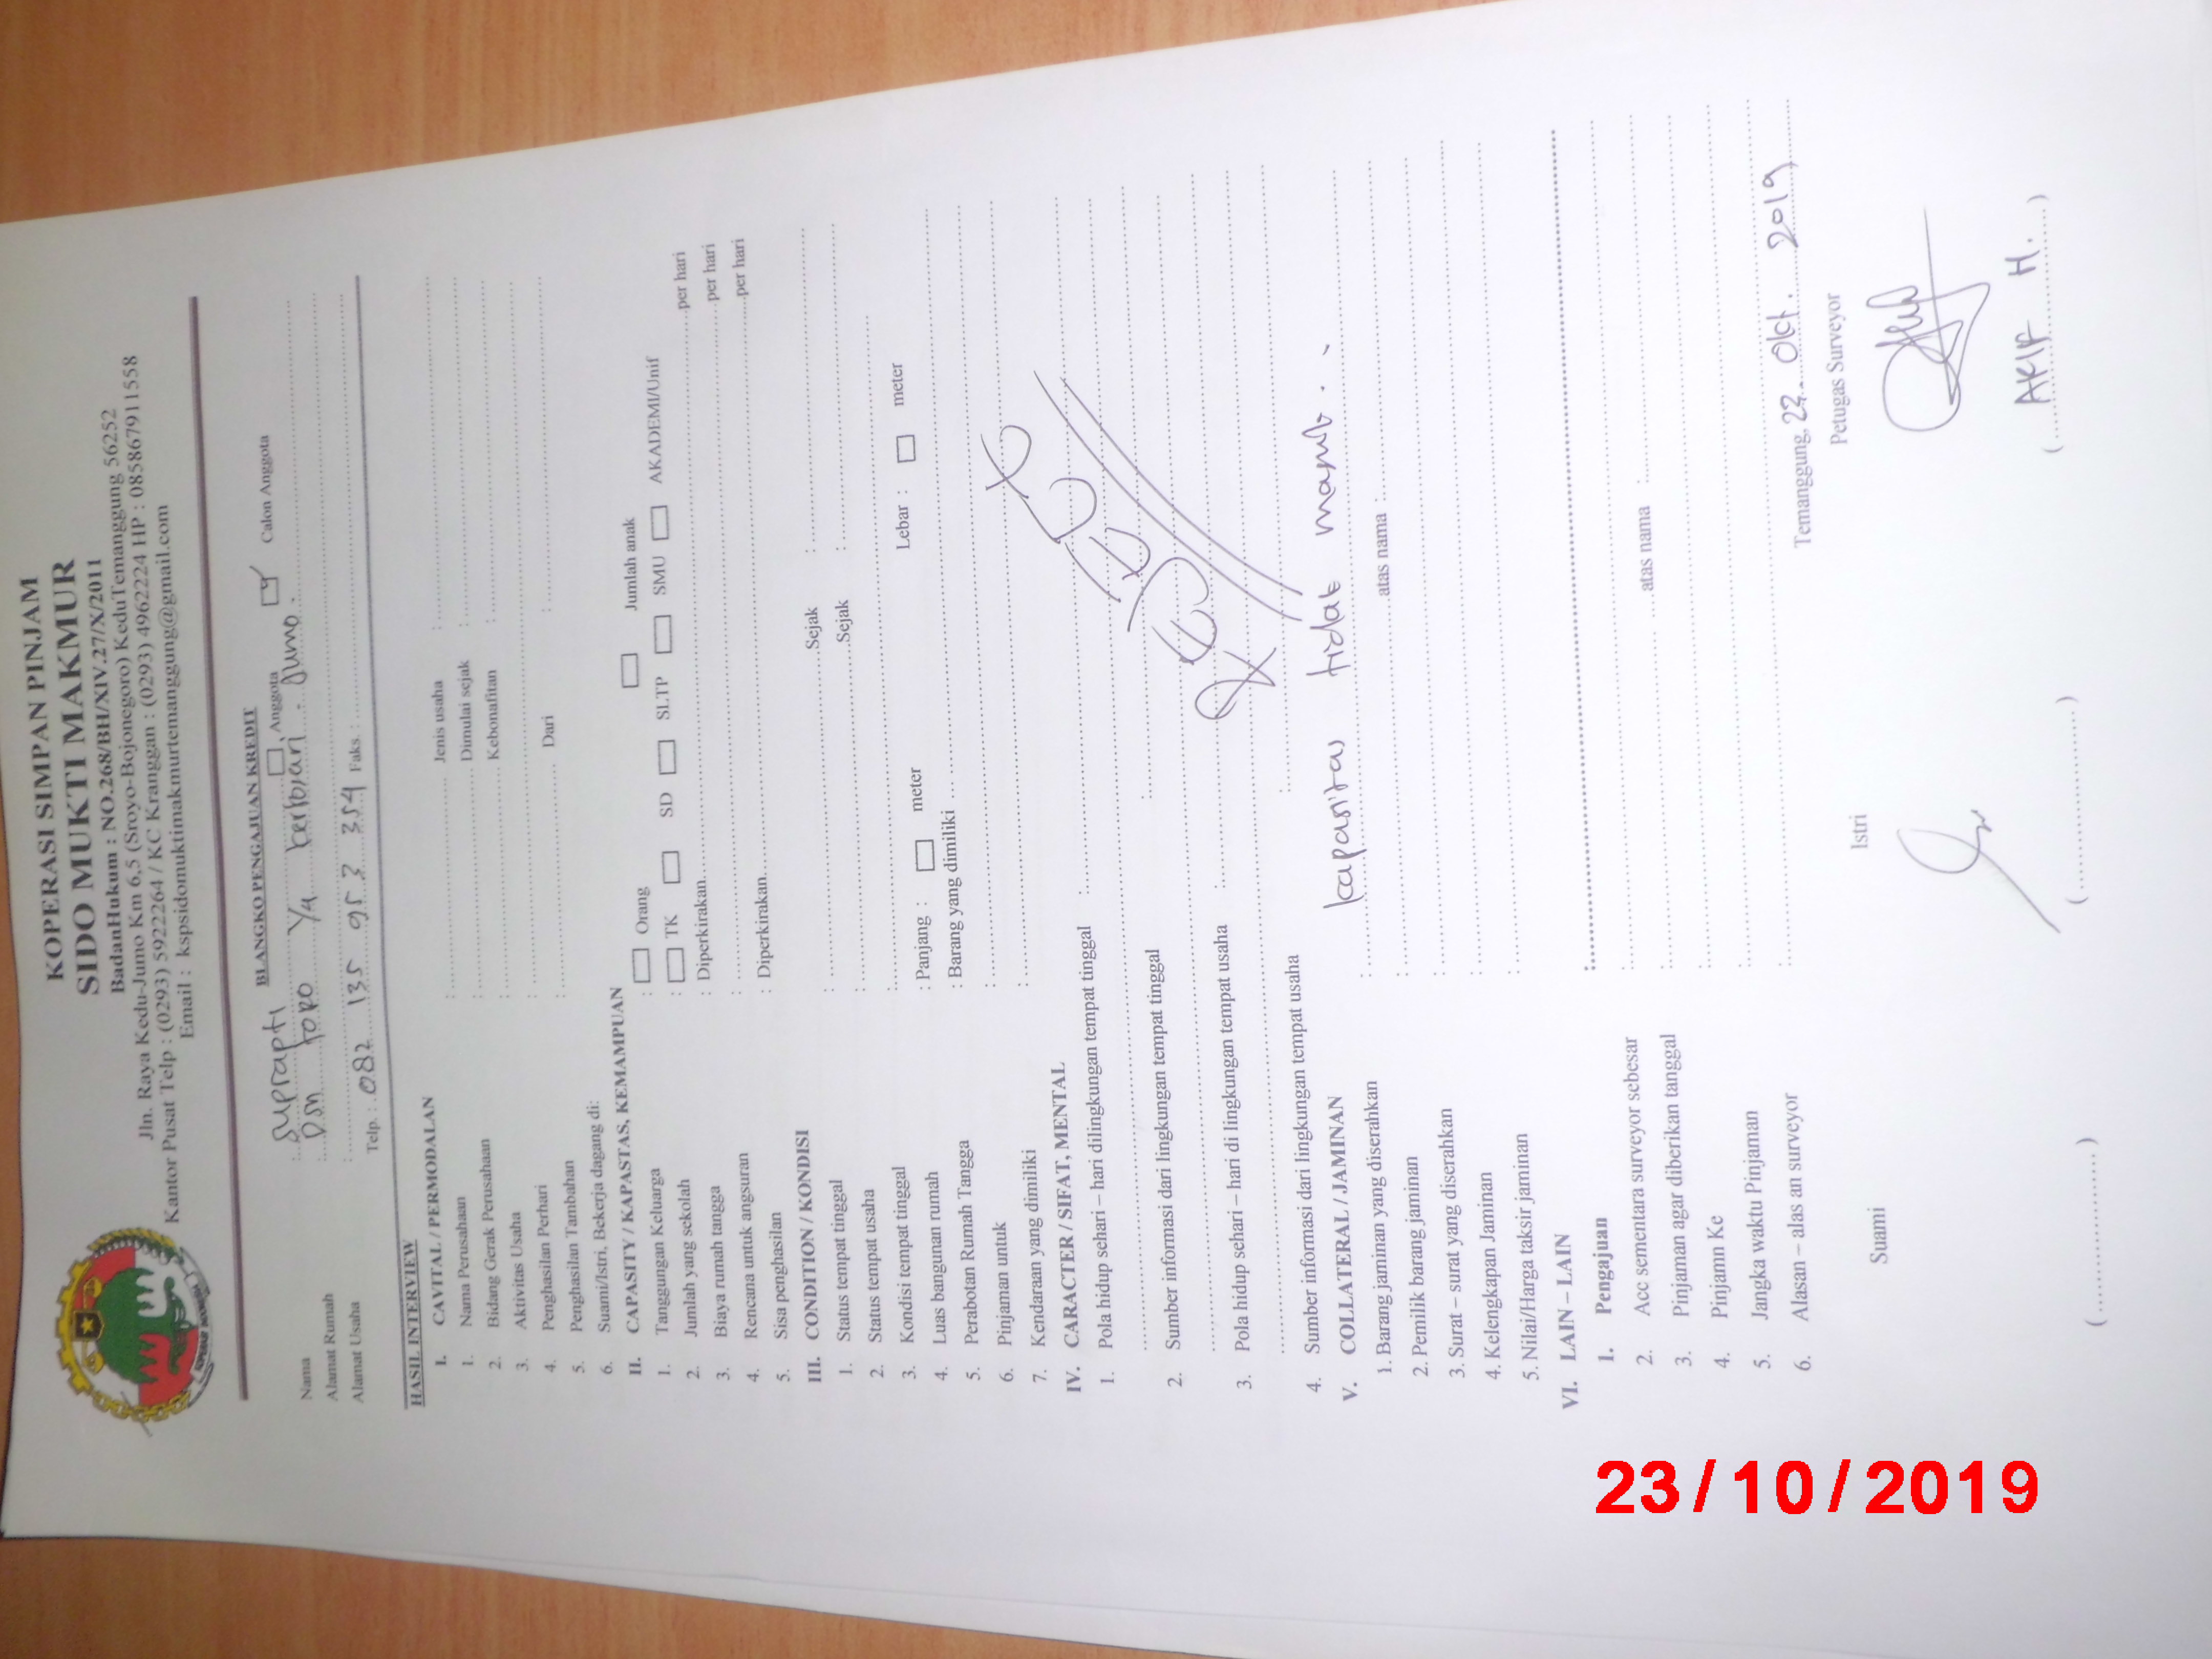 KOPERASI SIMPAN PINJAM
SIDO MUKTI MAKMUR
BadanHukum : NO.268/BH/XIV.27/X/2011
Jln. Raya Kedu-Jumo Km 6,5 (Sroyo-Bojonegoro) KeduTemanggung 56252
Kantor Pusat Telp : (0293) 5922264 / KC Kranggan : (0293) 4962224 HP : 085867911558
Email : kspsidomuktimakmurtemanggung@gmail.com
BLANGKO PENGAJUAN KREDIT
Anggota Calon Anggota
Nama : Suprapti
Alamat Rumah : Dsn Toro 1/4 Kertosari - Jumo.
Alamat Usaha :
Telp : 082 135 953 354 Faks :
HASIL INTERVIEW
I. CAVITAL / PERMODALAN
1. Nama Perusahaan : Jenis usaha :
2. Bidang Gerak Perusahaan : Dimulai sejak :
3. Aktivitas Usaha : Kebonafitan :
4. Penghasilan Perhari :
5. Penghasilan Tambahan : Dari :
6. Suami/Istri, Bekerja dagang di:
II. CAPASITY / KAPASTAS, KEMAMPUAN
1. Tanggungan Keluarga : Orang Jumlah anak
2. Jumlah yang sekolah : TK SD SLTP SMU AKADEMI/Unif
3. Biaya rumah tangga : Diperkirakan per hari
4. Rencana untuk angsuran : per hari
5. Sisa penghasilan : Diperkirakan per hari
III. CONDITION / KONDISI
1. Status tempat tinggal : Sejak :
2. Status tempat usaha : Sejak :
3. Kondisi tempat tinggal :
4. Luas bangunan rumah : Panjang : meter Lebar : meter
5. Perabotan Rumah Tangga : Barang yang dimiliki
6. Pinjaman untuk :
7. Kendaraan yang dimiliki :
IV. CARACTER / SIFAT, MENTAL
1. Pola hidup sehari – hari dilingkungan tempat tinggal :
2. Sumber informasi dari lingkungan tempat tinggal :
3. Pola hidup sehari – hari di lingkungan tempat usaha :
4. Sumber informasi dari lingkungan tempat usaha :
kapasitas tidak mampu . .
V. COLLATERAL / JAMINAN
1. Barang jaminan yang diserahkan : atas nama :
2. Pemilik barang jaminan :
3. Surat – surat yang diserahkan :
4. Kelengkapan Jaminan :
5. Nilai/Harga taksir jaminan :
VI. LAIN – LAIN
1. Pengajuan :
2. Acc sementara surveyor sebesar : atas nama :
3. Pinjaman agar diberikan tanggal :
4. Pinjamn Ke :
5. Jangka waktu Pinjaman :
6. Alasan – alas an surveyor :
Temanggung, 23 Okt. 2019
Suami Istri Petugas Surveyor
( ) ( ) ( AKIF H. )
23/10/2019